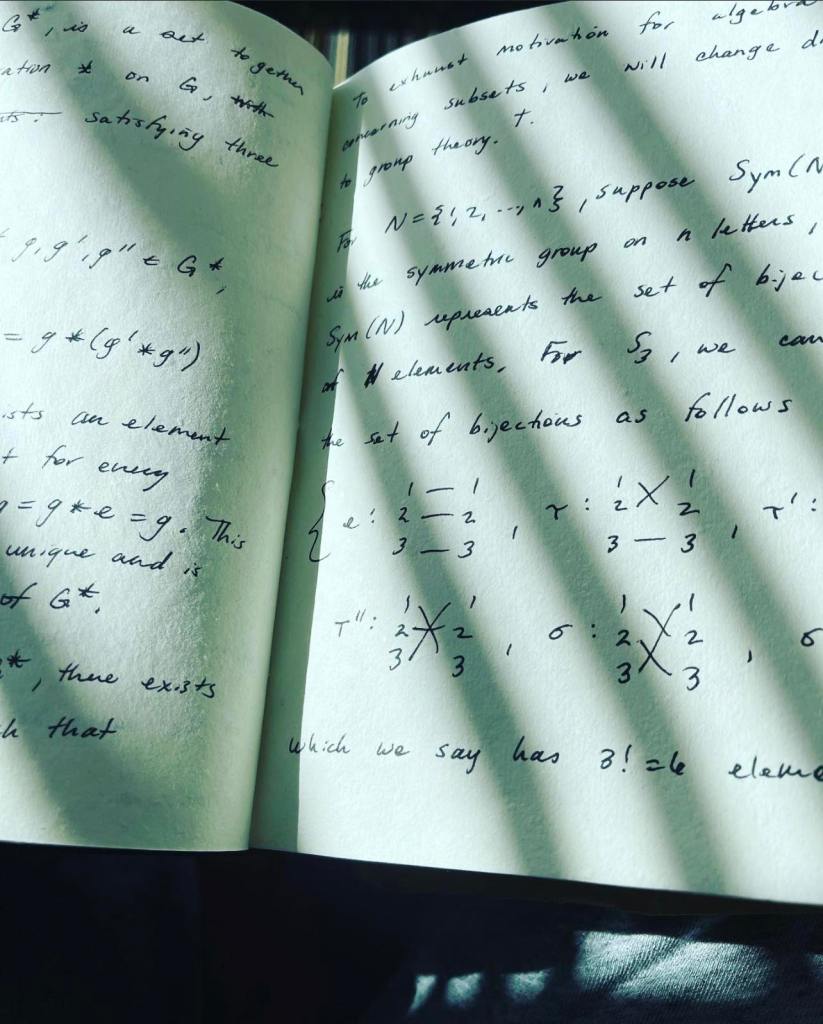 G*, is a set together
ation * on G, with
ts: satisfying three
g, g', g'' ∈ G*,
= g * (g' * g'')
ists an element
t for every
g = g * e = g. This
unique and is
of G*.
*, there exists
h that
To exhaust motivation for algebra
concerning subsets, we will change di
to group theory. T.
For N = {1, 2, ..., n}, suppose Sym(N
is the symmetric group on n letters,
Sym(N) represents the set of bijec
of N elements. For S3, we can
the set of bijections as follows
{ e: 1 — 1, τ: 1 1, τ':
2 — 2 2 2
3 — 3 3 — 3
τ'': 1 1, σ: 1 1, σ
2 2 2 2
3 3 3 3
which we say has 3! = 6 eleme